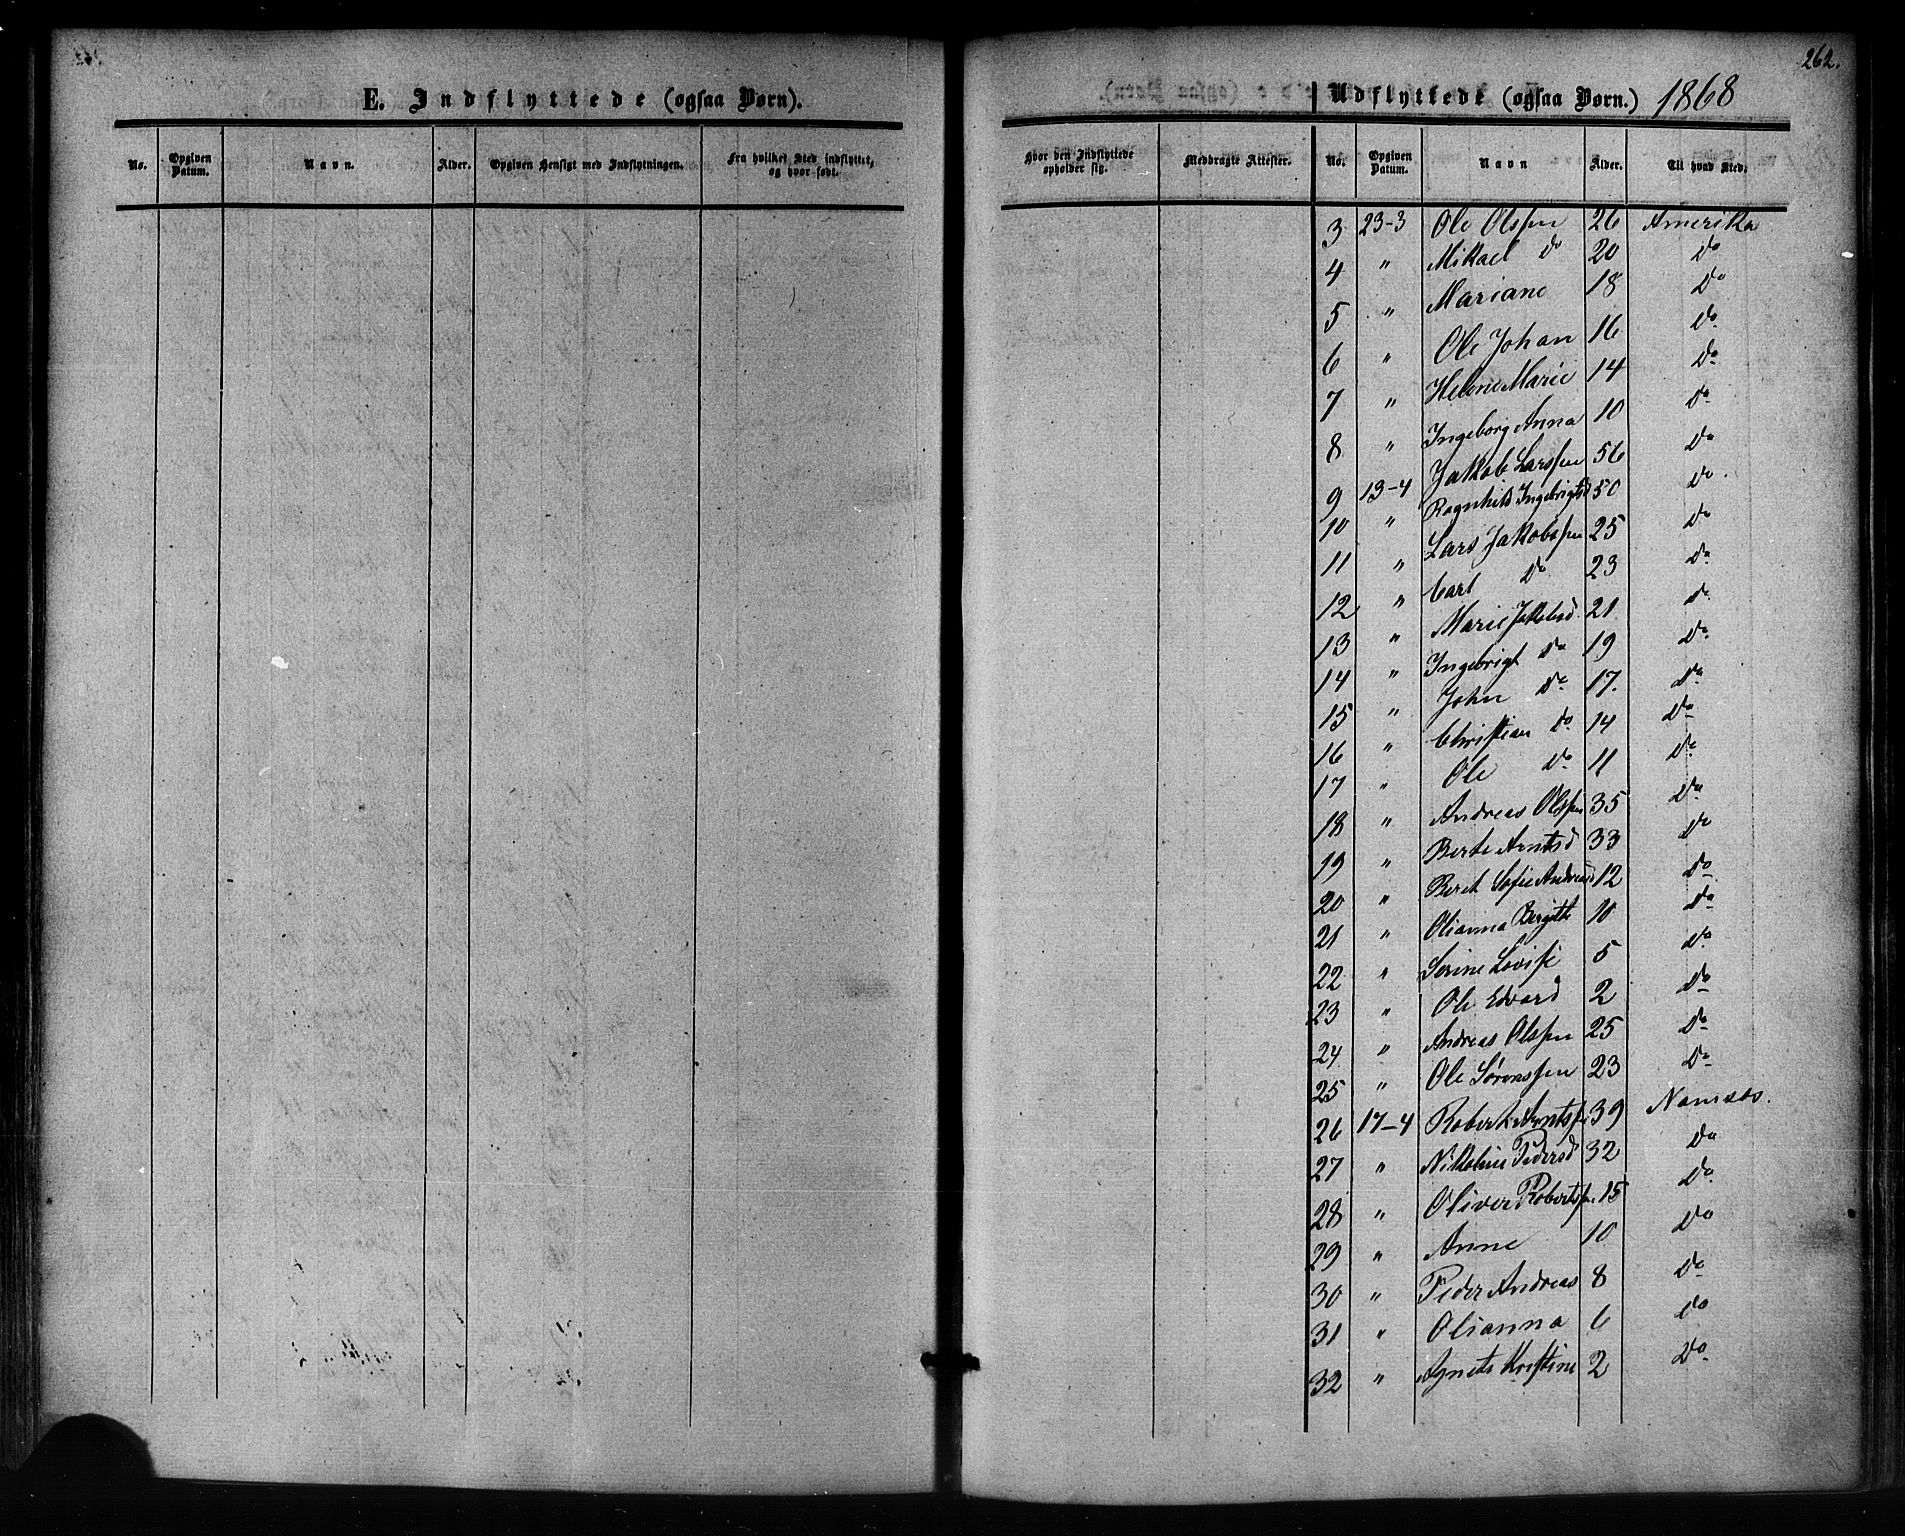 E. Indflyttede (ogsaa Børn).
No. Opgiven Datum. Navn. Alder. Opgiven Hensigt med Indflytningen. Fra hvilket Sted indflyttet, og hvor født.
262.
Udflyttede (ogsaa Børn.) 1868
Hvor den Indflyttede opholder sig. Medbragte Attester. No. Opgiven Datum. Navn Alder. Til hvad Sted.
3 23-3 Ole Olssen 26 Amerika
4 " Mikael do 20 do
5 " Mariane 18 do
6 " Ole Johan 16 do
7 " Helene Marie 14 do
8 " Ingeborg Anna 10 do
9 13-4 Jakob Larssen 56 do
10 " Ragnhild Ingebrigtsd 50 do
11 " Lars Jakobssen 25 do
12 " Carl do 23 do
13 " Marie Jakobsd. 21 do
14 " Ingebrigt do 19 do
15 " John do 17. do
16 " Christian do 14 do
17 " Ole do 11 do
18 " Andreas Olssen 35 do
19 " Berte Arntsd 33 do
20 " Beret Sofie Andreasd 12 do
21 " Olianna Bergitte 10 do
22 " Serine Lovise 5 do
23 " Ole Edvard 2 do
24 " Andreas Olssen 25 do
25 " Ole Sørenssen 23 do
26 17-4 Robert Arntssen 39 Namsos.
27 " Nikoline Pedersd 32 do
28 " Oliver Robertssen 15 do
29 " Anne 10 do
30 " Peder Andreas 8 do
31 " Olianna 6 do
32 " Agnete Kristine 2 do